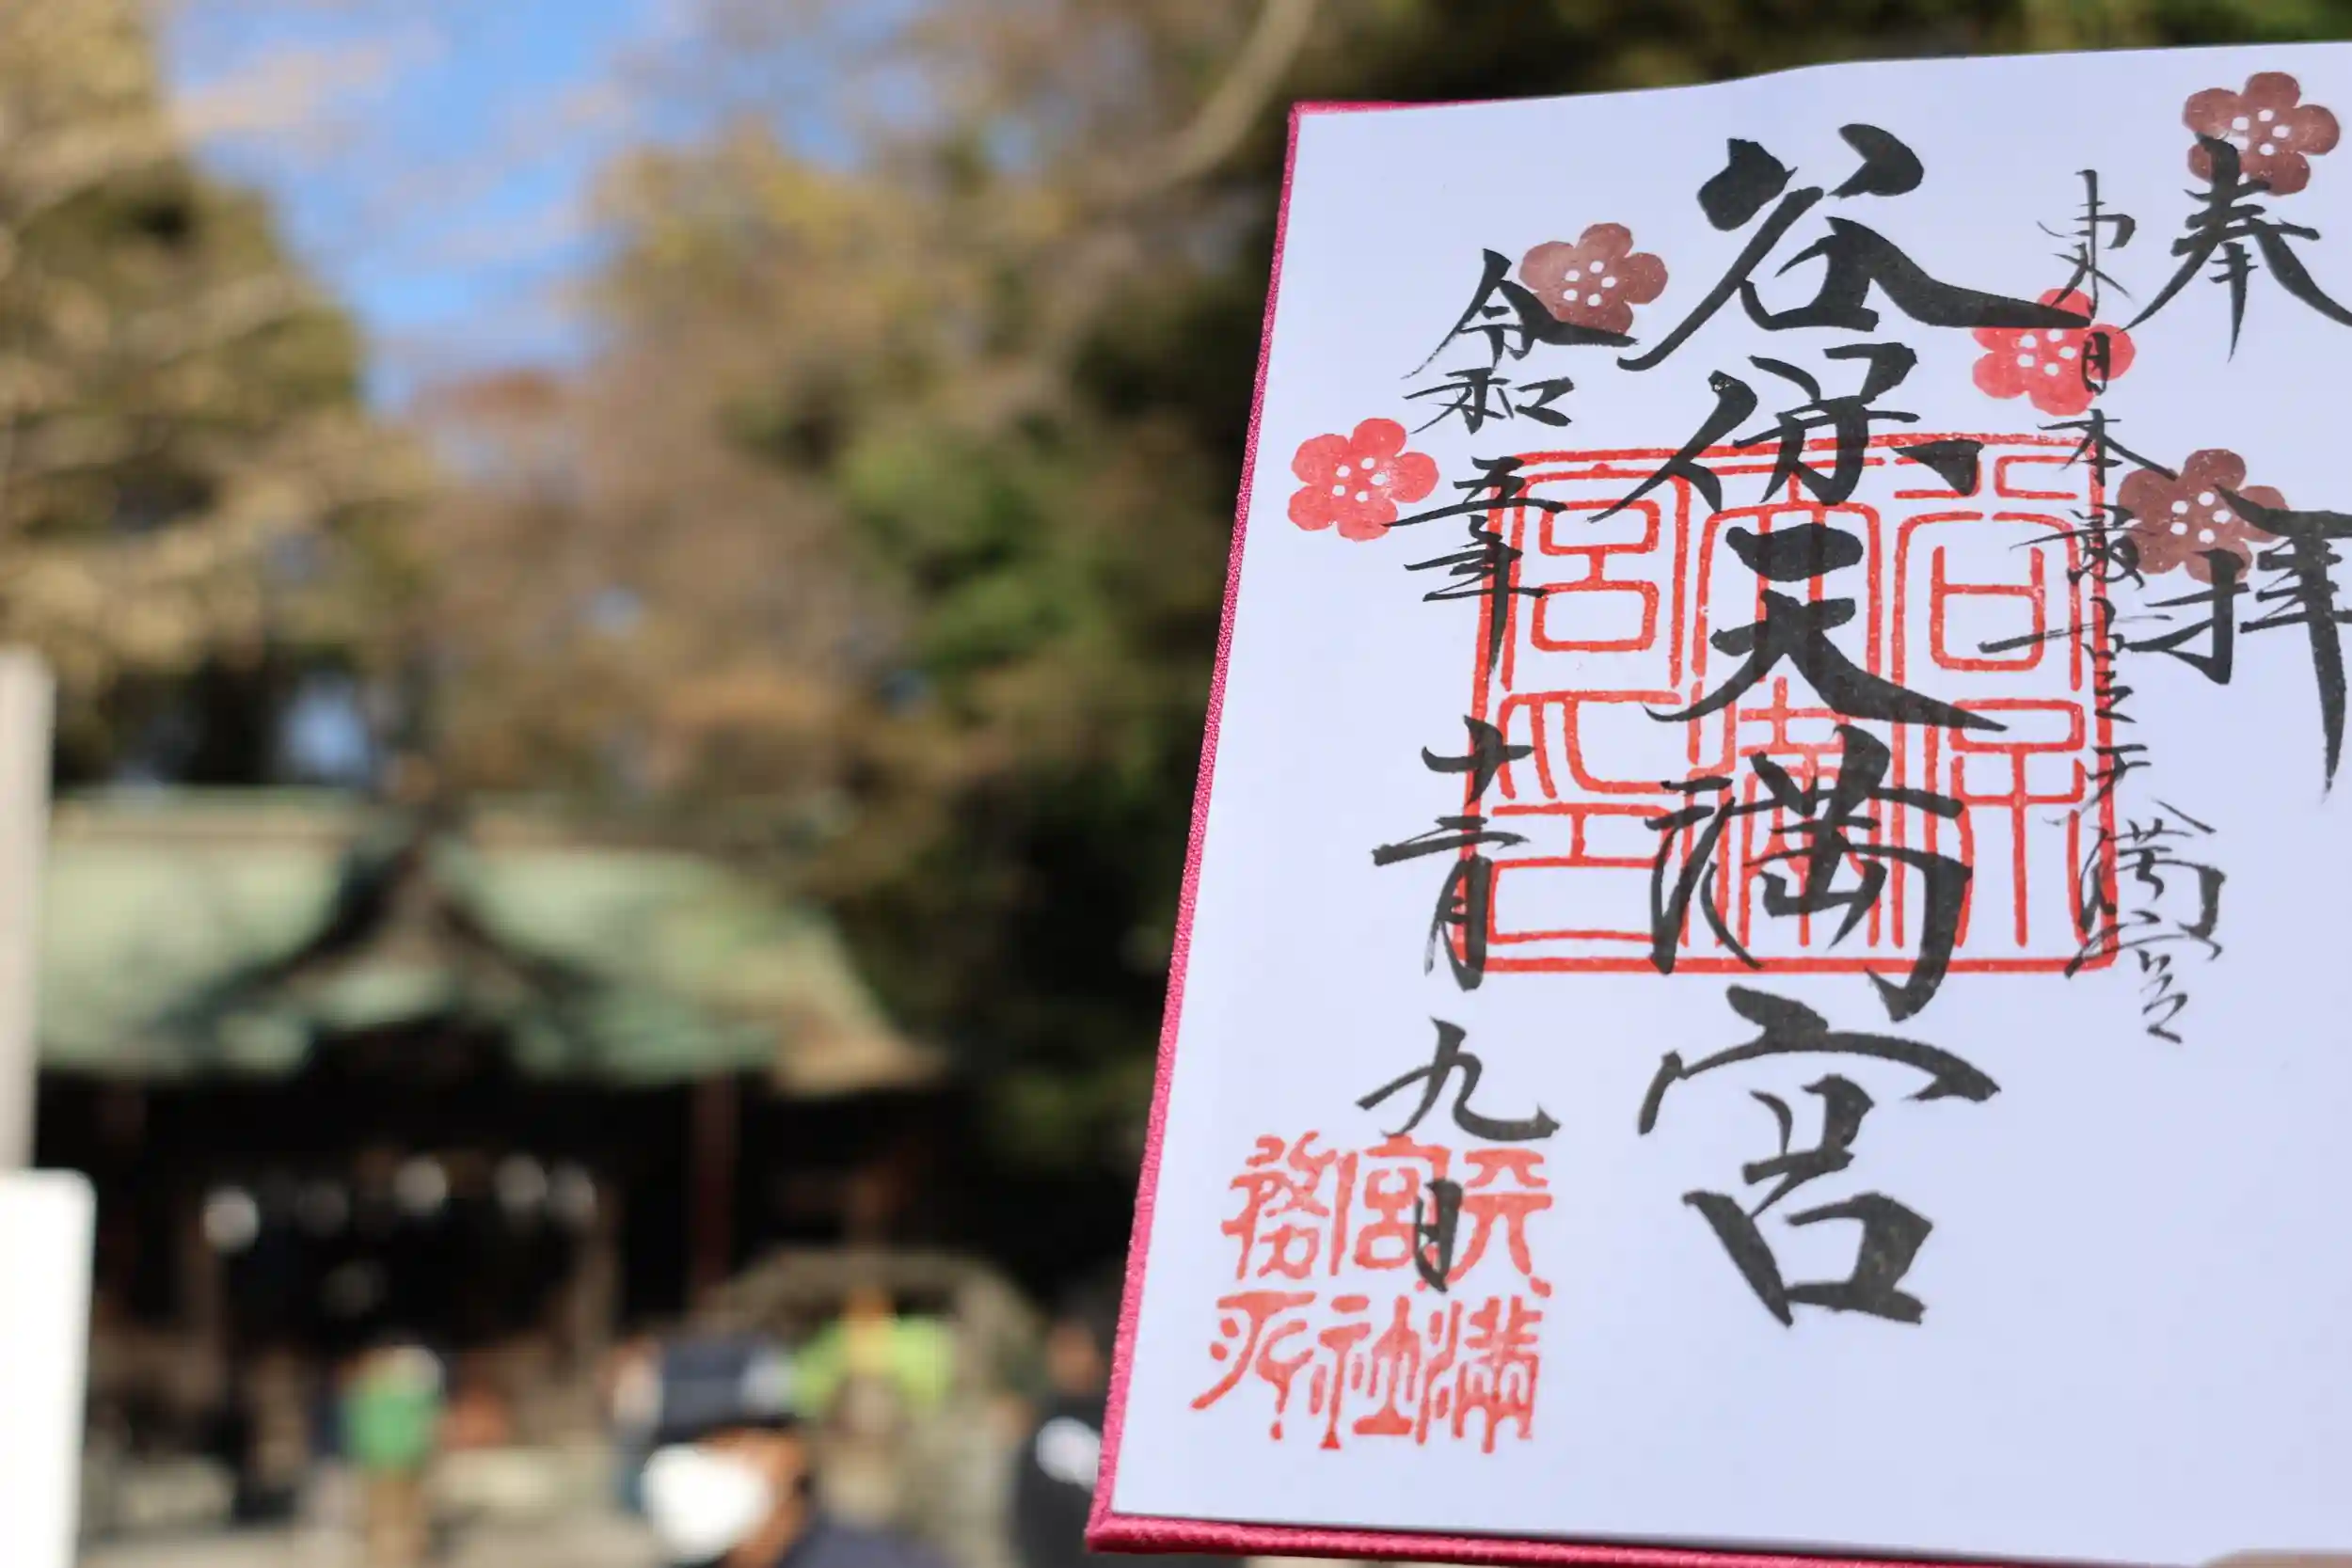 奉拝
東日本最古之天満宮
谷保天満宮
令和五年十二月九日
谷保
天満
宮印
天満
宮社
務所